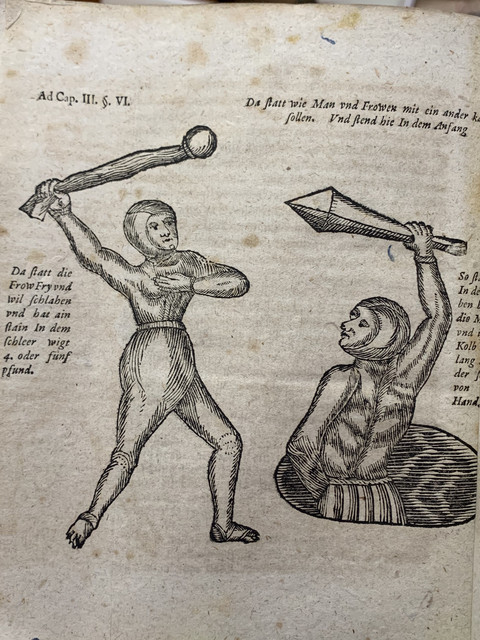 Ad Cap. III. §. VI.
Da ſtatt wie Man vnd Frowen mit ein ander
ſollen. Vnd ſtend hie In dem Anfang
Da ſtatt die
Frow Fry vnd
wil ſchlahen
vnd hat ain
ſtain In dem
ſchleer wigt
4. oder fünf
pfund.
So
In
die
vnd
Kolb
lang
der
von
Hand,